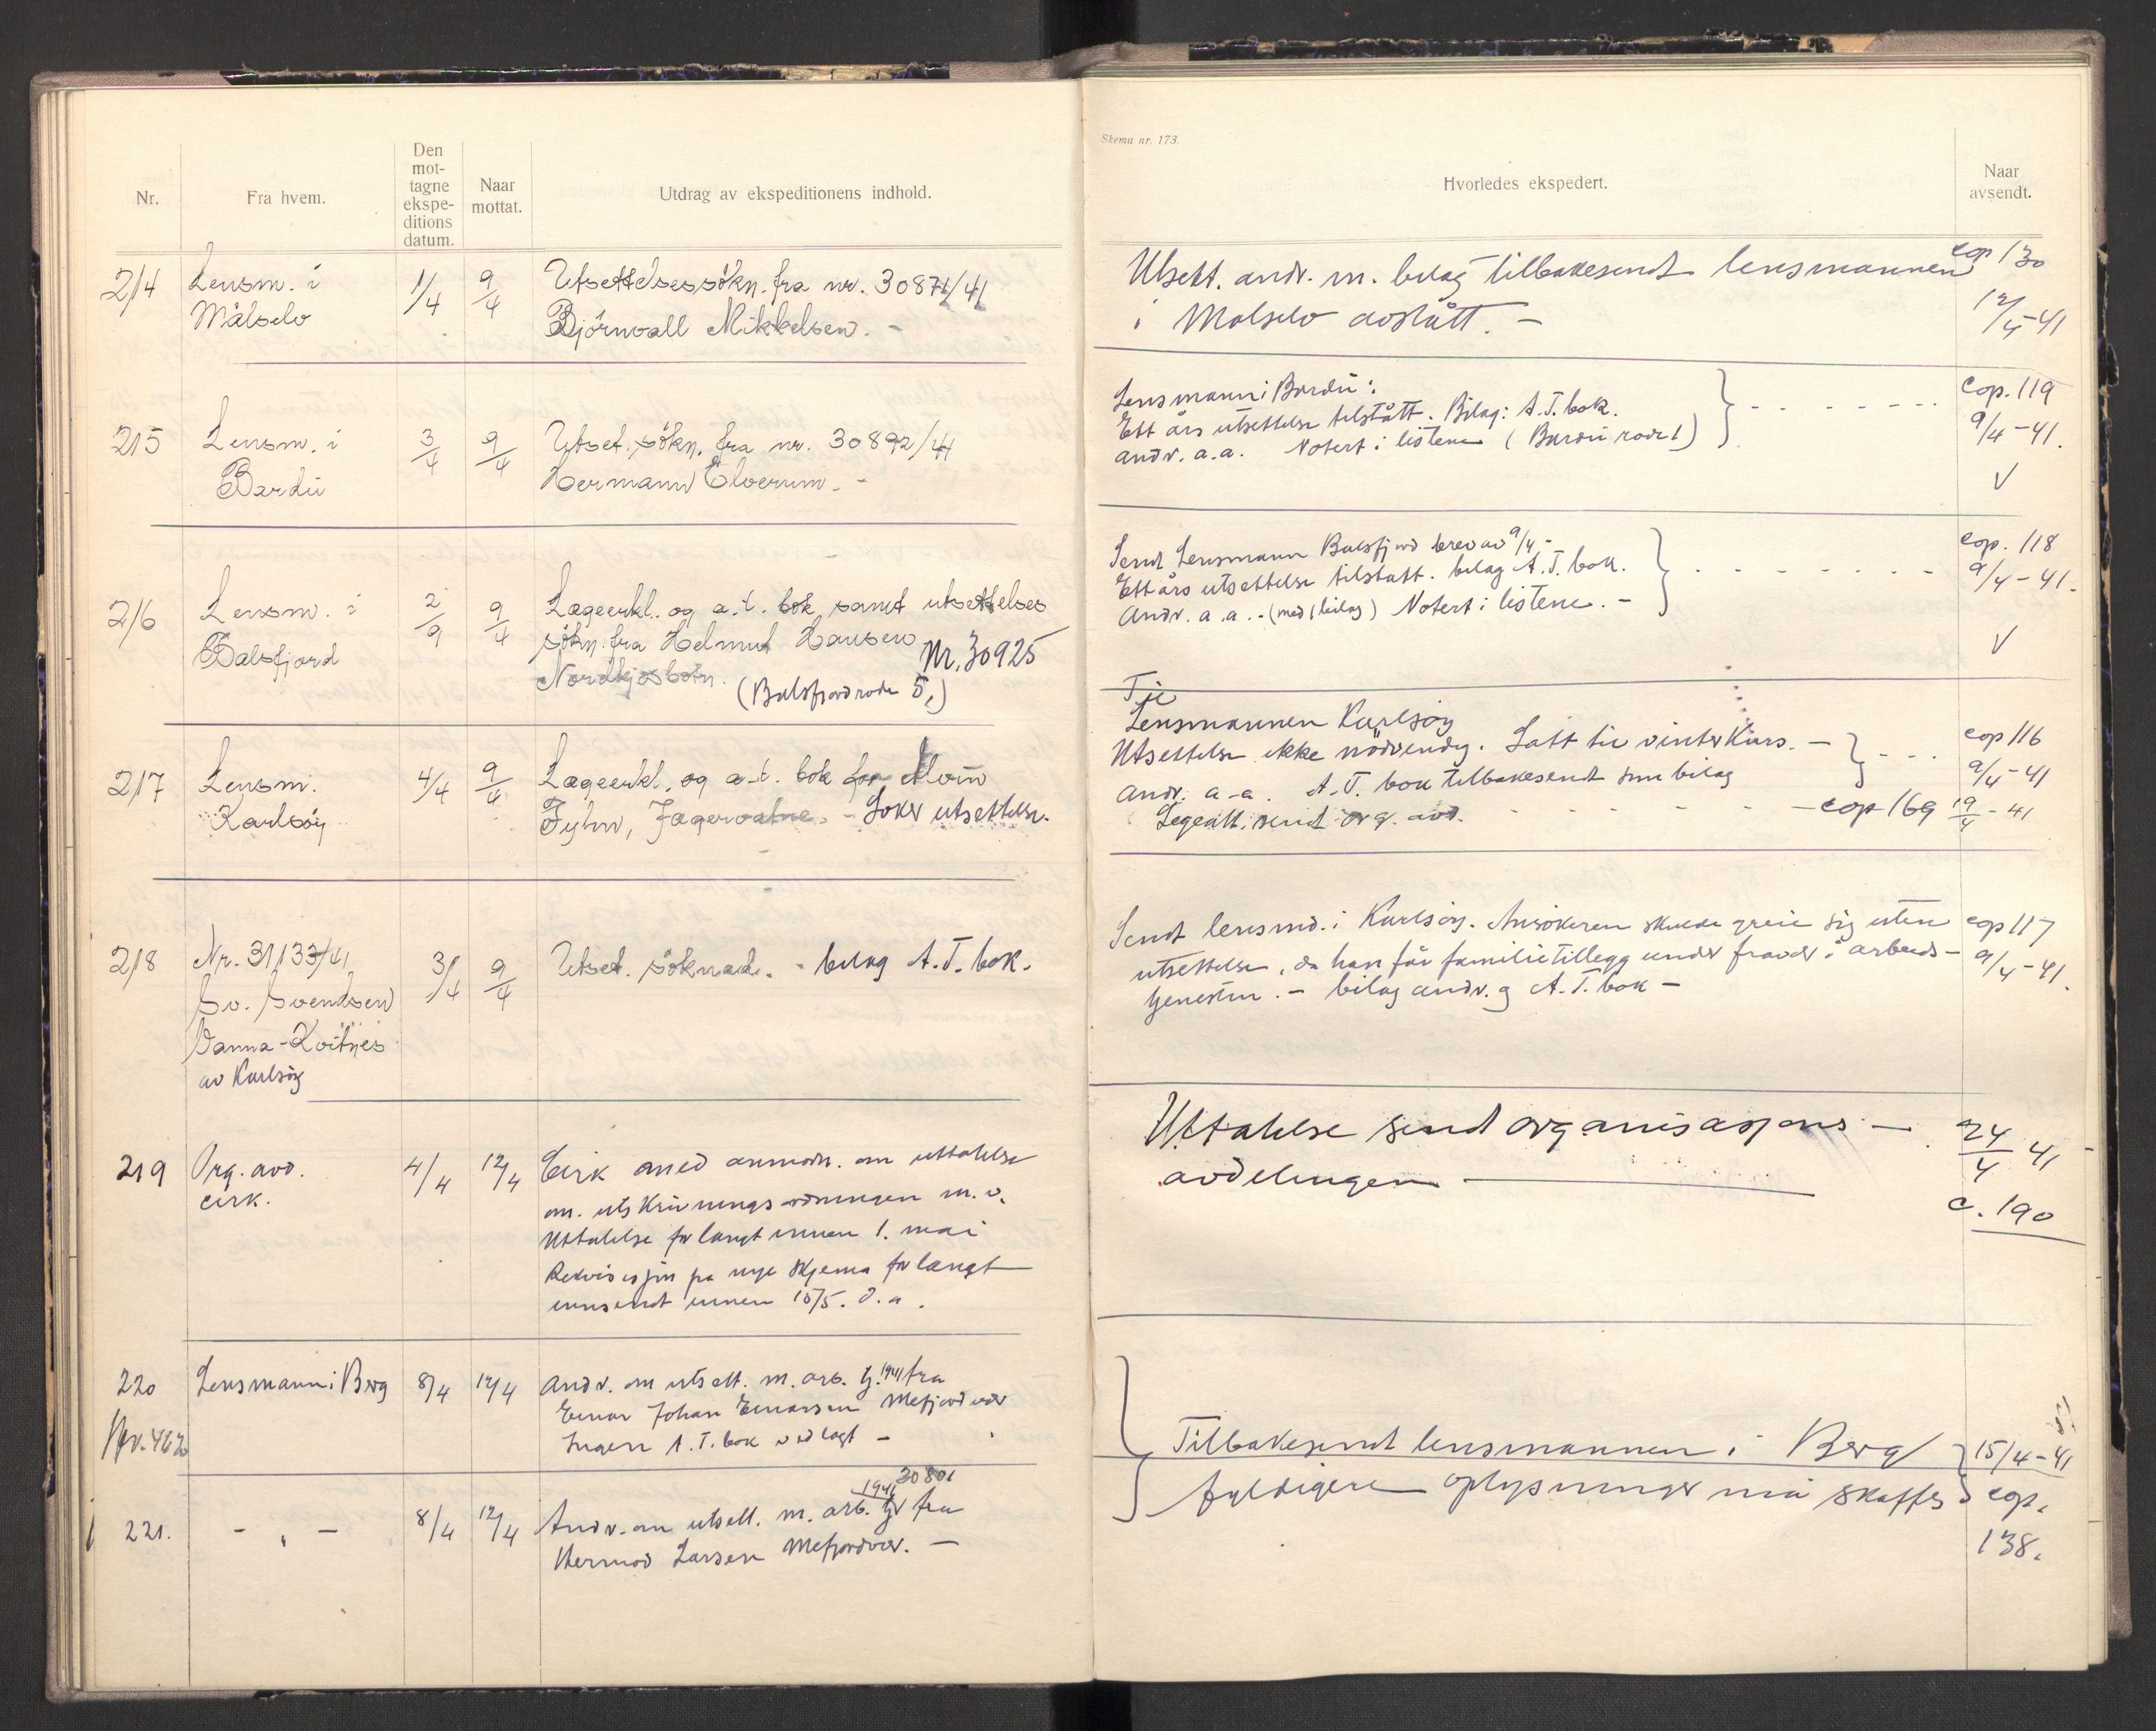 Nr.
Fra hvem.
Den
mot-
tagne
ekspe-
ditions
datum.
Naar
mottat.
Utdrag av ekspeditionens indhold.
214
Lensm. i
Målselv
1/4
9/4
Utsettelsessökn. fra nr. 30871/41
Björnvall Mikkelsen. -
215
Lensm. i
Bardu
3/4
9/4
Utset. sökn. fra nr. 30892/41
Hermann Elverum. -
216
Lensm. i
Balsfjord
2/9
9/4
Lægeerkl. og a.t. bok samt utsettelses
sökn. fra Helmut Hansen
Nordkjosbotn.
Nr. 30925
(Balsfjord rode 5.)
217
Lensm.
Karlsöy
4/4
9/4
Lægeerkl. og a-t. bok for
Fyhn, Jægervatne. - Söker utsettelse.
218
Nr. 31133/41
Sv. Svendsen
Vanna-Kvitnes
av Karlsöy
3/4
9/4
Utset. söknad. - bilag A.T. bok.
219
Org. avd.
cirk.
4/4
12/4
Cirk med anmodn. om uttalelse
om. utskrivningsordningen m.v.
Uttalelse forlangt innen 1. mai
Rekvisisjon på nye skjema forlangt
innsendt innen 15/5. d.a.
220
Nr. 462
Lensmann i Berg
8/4
12/4
Andr. om utsett. m. arb. tj. 1941 fra
Einar Johan Einarsen Mefjordvær
Ingen A.T. bok vedlagt -
221.
- " -
8/4
12/4
1941 30801
Andr. om utsett. m. arb. tj fra
Hermod Larsen Mefjordvær. -
Skema nr. 173.
Hvorledes ekspedert.
Naar
avsendt.
Utsett. andr. m. bilag tilbakesendt lensmannen
i Målselv avslått. -
cop 130
12/4-41
Lensmann i Bardu:
Ett års utsettelse tilstått. Bilag: A.T. bok.
andr. a.a. Notert i listene (Bardu rode 1)
cop. 119
9/4-41.
V
Sendt Lensmann Balsfjord brev av 9/4 -
Ett års utsettelse tilstått. bilag A.T. bok.
Andr. a.a. - (med 1 bilag) Notert i listene. -
cop. 118
9/4-41.
V
Til
Lensmannen Karlsöy
Utsettelse ikke nödvendig. Satt til vinterkurs. -
andr. a-a. A.T. bok tilbakesendt som bilag
Legeatt. sendt org. avd.
cop 116
9/4-41
cop 169 19/4-41
Sendt lensmd. i Karlsöy. Ansökeren skulde greie sig uten
utsettelse, da han får familietillegg under fravær i arbeids-
tjenesten. - bilag andr. og A.T. bok -
cop 117
9/4-41.
Uttalelse sendt organisasjons -
avdelingen
24/4 41
c. 190
Tilbakesendt lensmannen i Berg
fyldigere oplysninger må skaffes
15/4-41
cop.
138.